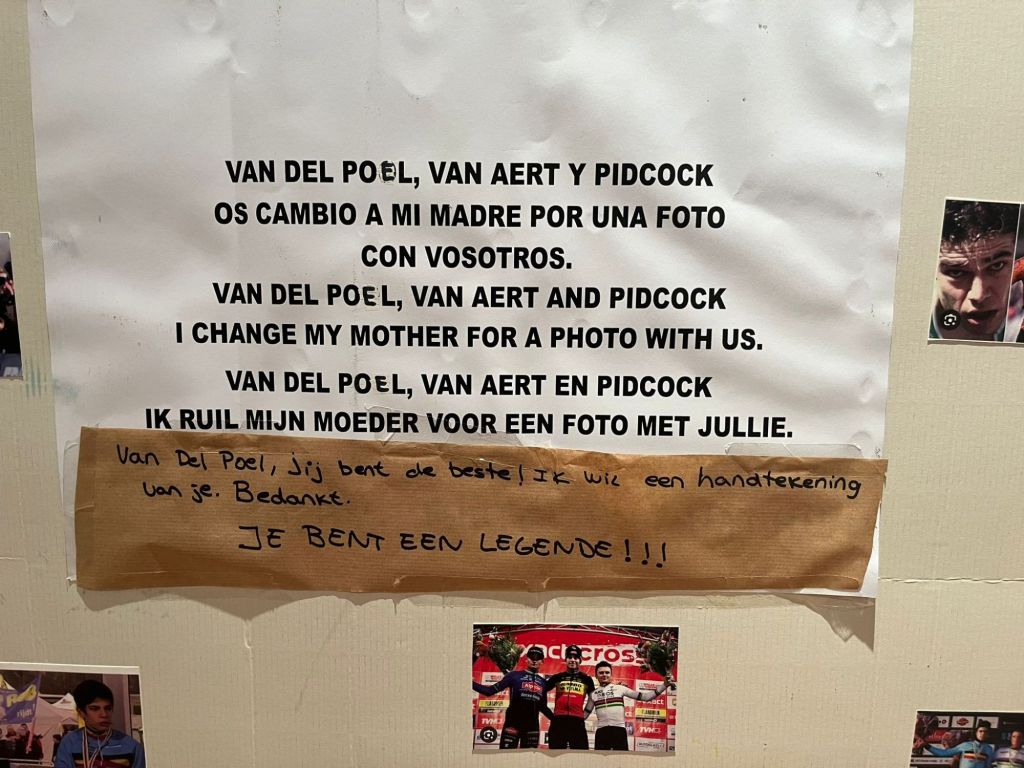 VAN DEL POEL, VAN AERT Y PIDCOCK
OS CAMBIO A MI MADRE POR UNA FOTO
CON VOSOTROS.
VAN DEL POEL, VAN AERT AND PIDCOCK
I CHANGE MY MOTHER FOR A PHOTO WITH US.
VAN DEL POEL, VAN AERT EN PIDCOCK
IK RUIL MIJN MOEDER VOOR EEN FOTO MET JULLIE.
Van Del Poel, jij bent de beste! IK wil een handtekening
van je. Bedankt.
JE BENT EEN LEGENDE!!!